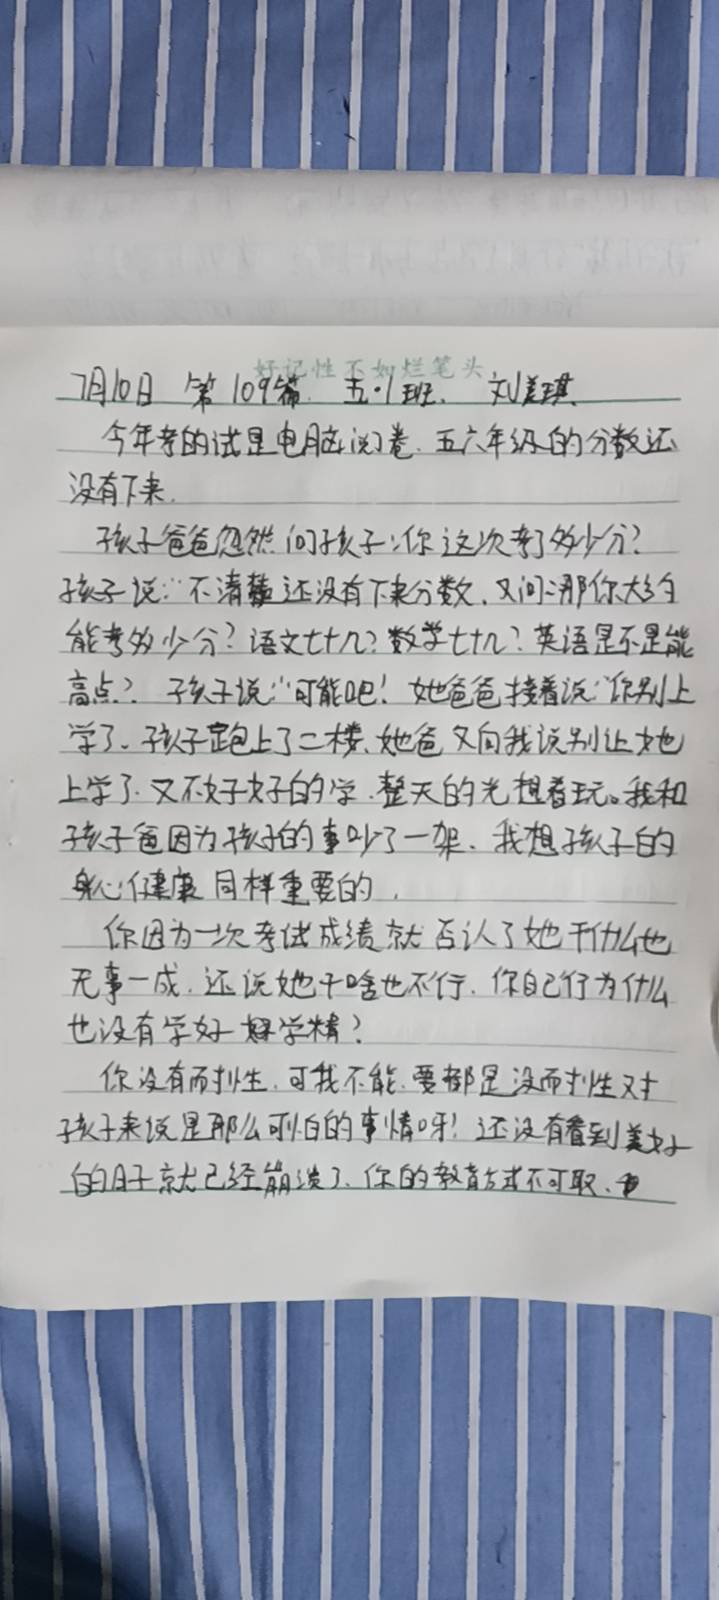 好记性不如烂笔头
7月10日 第109篇. 五·1班. 刘美琪
今年考的试是电脑阅卷.五六年级的分数还
没有下来.
孩子爸爸忽然问孩子:你这次考了多少分?
孩子说:"不清楚还没有下来分数.又问:那你大约
能考多少分?语文七十几?数学七十几?英语是不是能
高点? 孩子说:"可能吧!她爸爸接着说:"你别上
学了.孩子跑上了二楼.她爸又向我说别让她
上学了.又不好好的学.整天的光想着玩。我和
孩子爸因为孩子的事吵了一架.我想孩子的
身心健康同样重要的.
你因为一次考试成绩就否认了她干什么也
无事一成.还说她干啥也不行.你自己行为什么
也没有学好 学精?
你没有耐性.可我不能.要都是没耐性对
孩子来说是那么可怕的事情呀!还没有看到美好
的日子就已经崩溃了.你的教育方式不可取.